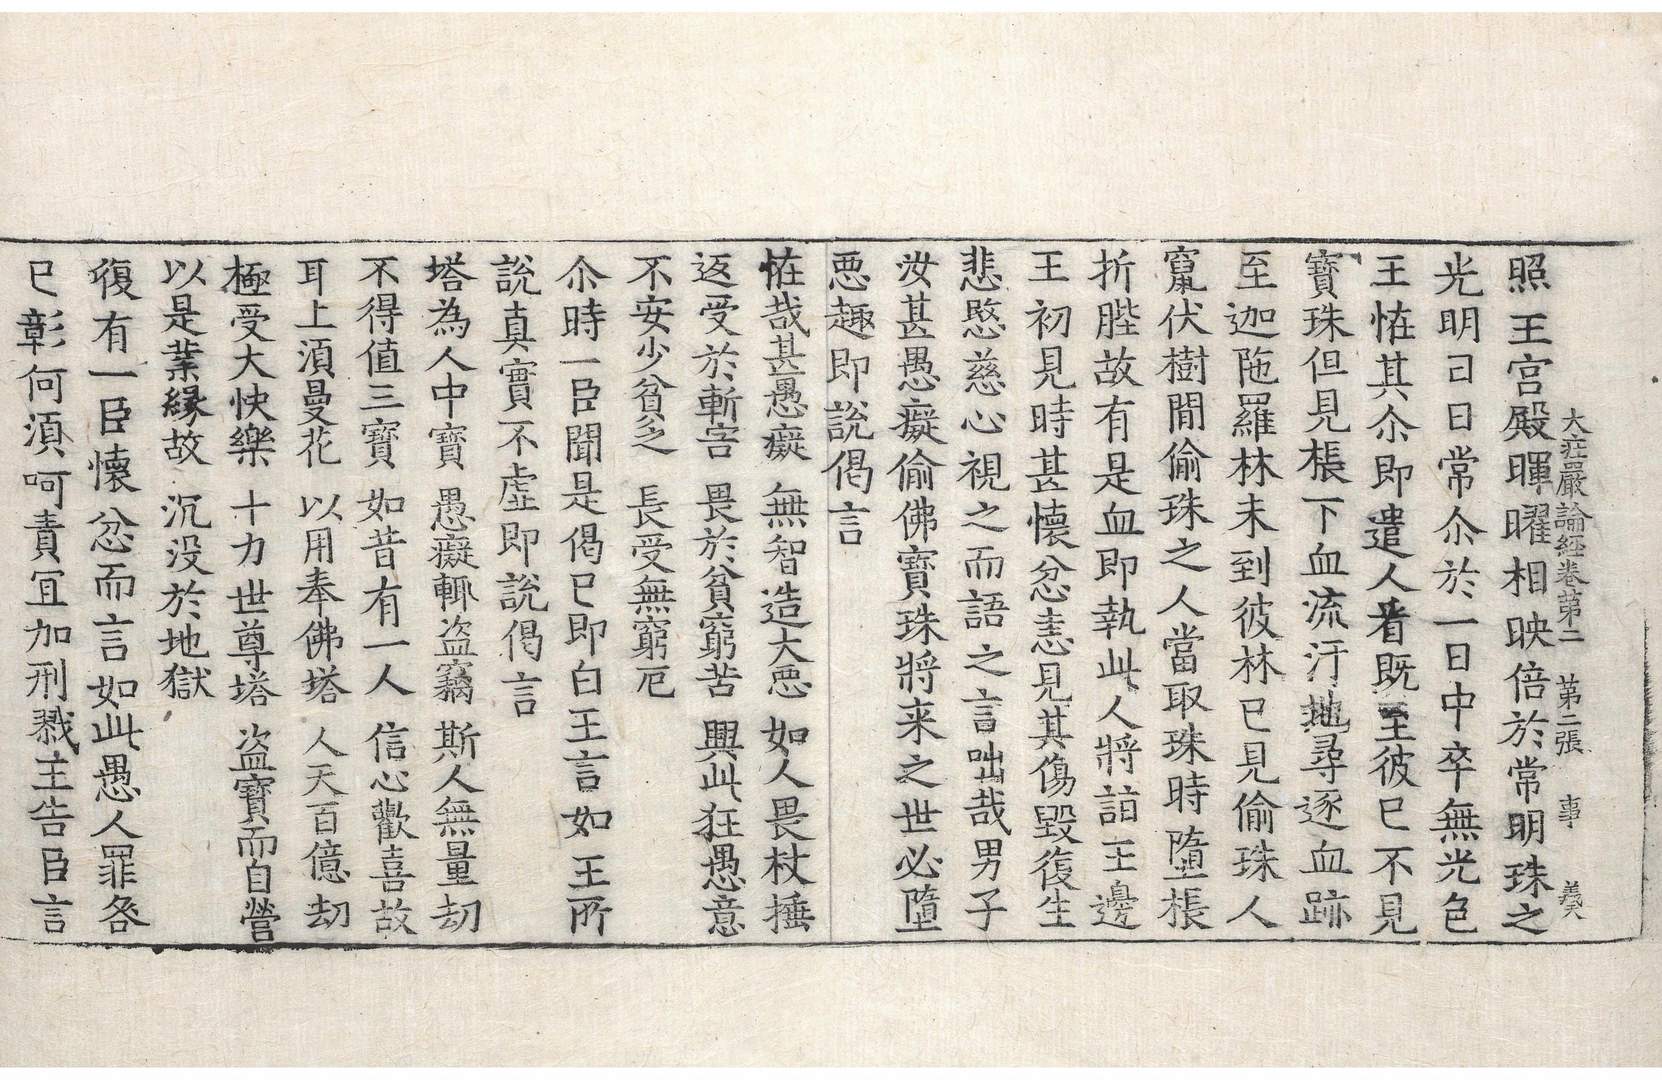 大莊嚴論經卷第二　第二張　事　義
照王宮殿暉曜相映倍於常明珠之
光明日日常尒於一日中卒無光色
王恠其尒即遣人看既至彼已不見
寶珠但見棖下血流汙地尋逐血跡
至迦陁羅林未到彼林已見偷珠人
竄伏樹間偷珠之人當取珠時墮棖
折䏶故有是血即執此人將詣王邊
王初見時甚懷忿恚見其傷毀復生
悲愍慈心視之而語之言咄哉男子
汝甚愚癡偷佛寶珠將来之世必墮
惡趣即說偈言
恠哉甚愚癡　無智造大惡　如人畏杖捶
返受於斬害　畏於貧窮苦　興此狂愚意
不安少貧乏　長受無窮厄
尒時一臣聞是偈已即白王言如王所
說真實不虛即說偈言
塔為人中寶　愚癡輒盜竊　斯人無量劫
不得值三寶　如昔有一人　信心歡喜故
耳上須曼花　以用奉佛塔　人天百億劫
極受大快樂　十力世尊塔　盜寶而自營
以是業緣故　沉没於地獄
復有一臣懷忿而言如此愚人罪咎
已彰何須呵責冝加刑戮主告臣言